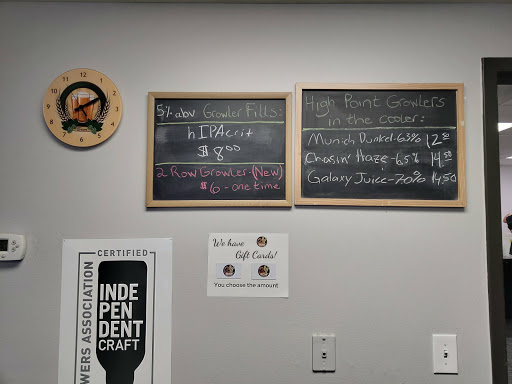 12
11
1
10
2
9
3
8
4
7
5
6
5% abv Growler Fills:
hIPAcrit
$8.00
2 Row Growler-(New)
$6 - one time
High Point Growlers
in the cooler:
Munich Dunkel-6.3% 12.50
Chasin' Haze-6.5% 14.50
Galaxy Juice-7.0% 14.50
We have
Gift Cards!
You choose the amount
CERTIFIED
WERS ASSOCIATION
INDE
PEN
DENT
CRAFT